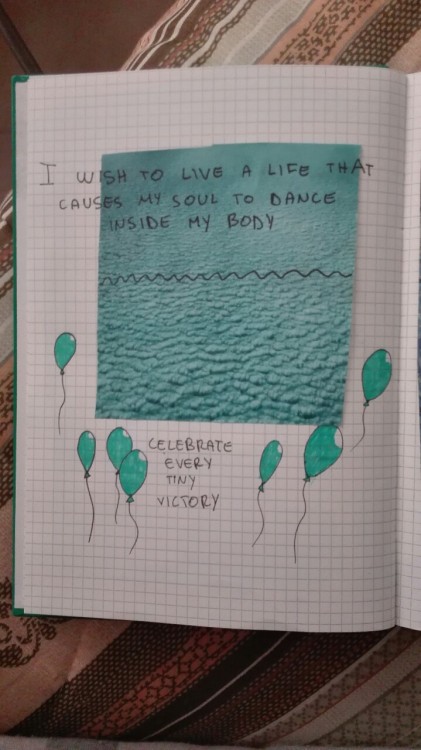 I WISH TO LIVE A LIFE THAT
CAUSES MY SOUL TO DANCE
INSIDE MY BODY
CELEBRATE
EVERY
TINY
VICTORY